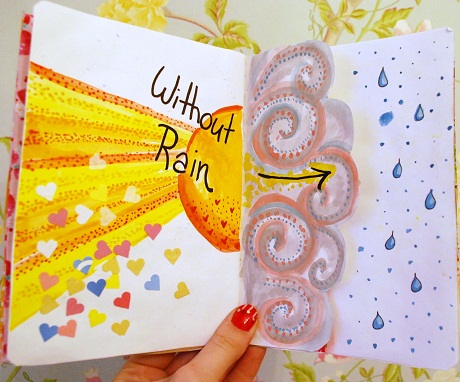 Without
Rain